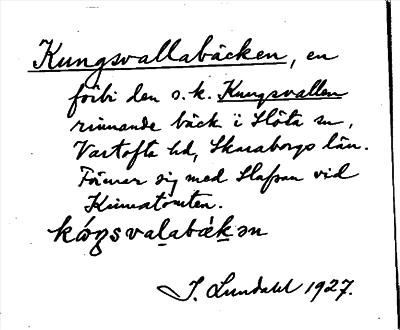 Kungsvallabäcken, en
förbi den s.k. Kungsvallen
rinnande bäck i Slöta sn,
Vartofta hd, Skaraborgs län.
Förenar sig med Slafsan vid
Kvarntomten.
J. Lundahl 1927.